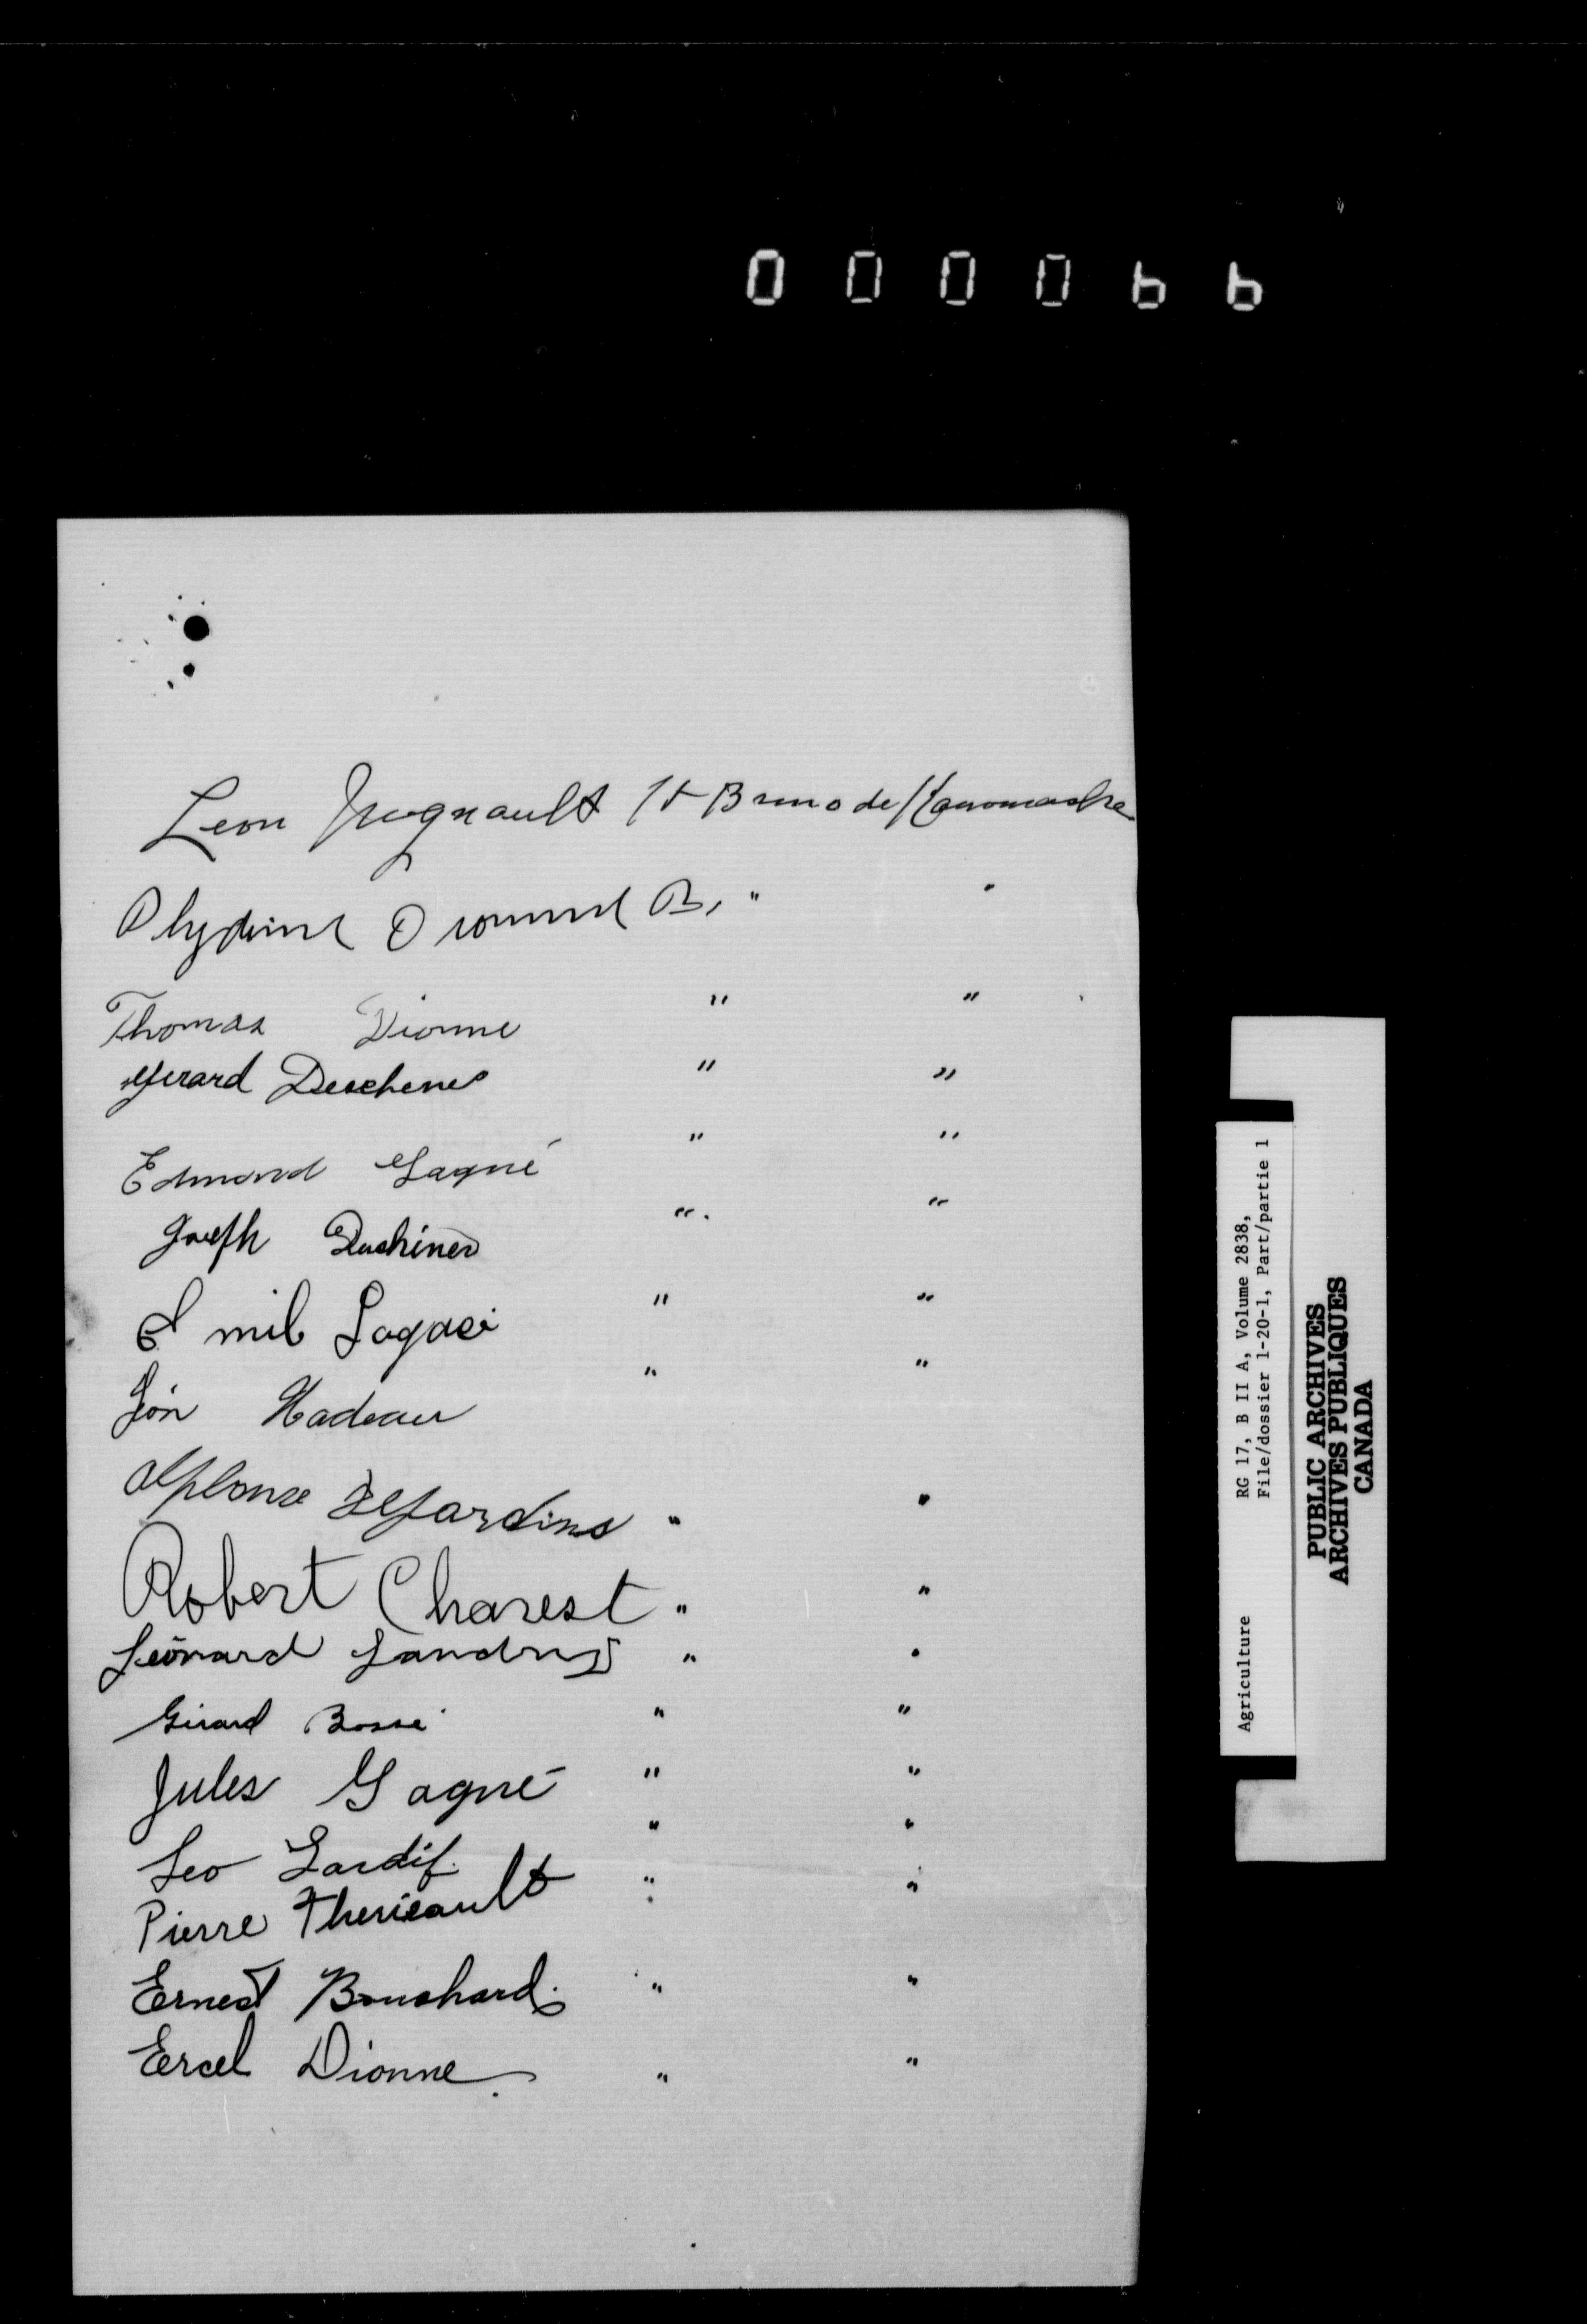 0 0 0 0 6 6
Leon St Bruno de Kamouraska
B. " "
Thomas Dionne " "
Gerard Deschenes " "
Edmond Gagné " "
Joseph Duchènes " "
Emil Lagacé " "
Léon Nadeau " "
Alphonse DesJardins " "
Robert Charest " "
Léonard Landry " "
Gérard Bossé " "
Jules Gagné " "
Leo Tardif. " "
Pierre Therieault " "
Ernest Bouchard. " "
Ercel Dionne. " "
Agriculture RG 17, B II A, Volume 2838,
File/dossier 1-20-1, Part/partie 1
PUBLIC ARCHIVES
ARCHIVES PUBLIQUES
CANADA